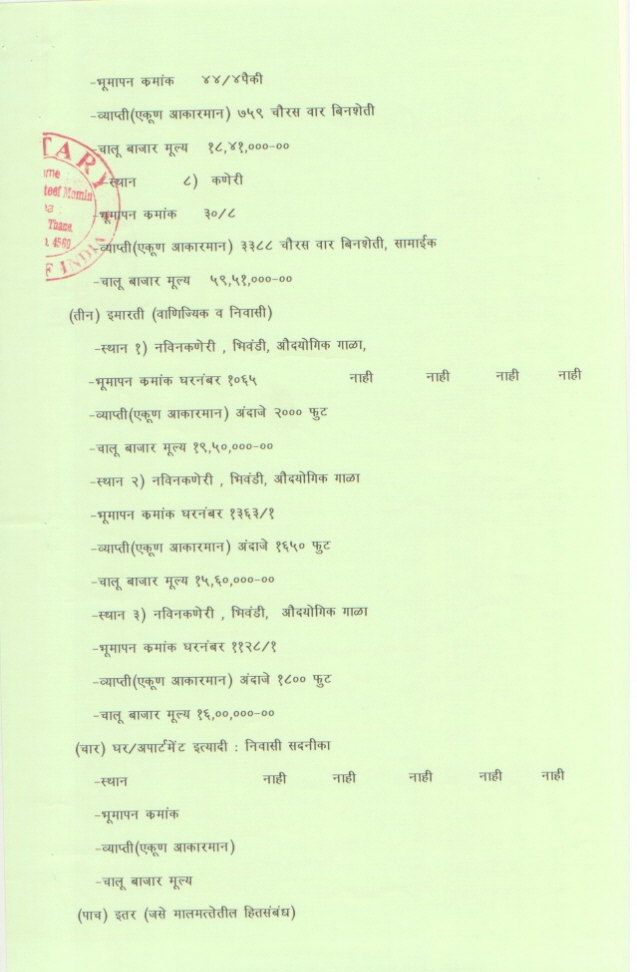 -भूमापन क्रमांक ४४/४पैकी
-व्याप्ती(एकूण आकारमान) ७५९ चौरस वार बिनशेती
-चालू बाजार मूल्य १८,४१,०००-००
-स्थान ८) कणेरी
-भूमापन क्रमांक ३०/८
-व्याप्ती(एकूण आकारमान) ३३८८ चौरस वार बिनशेती, सामाईक
-चालू बाजार मूल्य ५९,५१,०००-००
TARY
Momin
Thane
4560
F INDIA
(तीन) इमारती (वाणिज्यिक व निवासी)
-स्थान १) नविनकणेरी , भिवंडी, औदयोगिक गाळा,
-भूमापन क्रमांक घरनंबर १०६५ नाही नाही नाही नाही
-व्याप्ती(एकूण आकारमान) अंदाजे २००० फुट
-चालू बाजार मूल्य १९,५०,०००-००
-स्थान २) नविनकणेरी , भिवंडी, औदयोगिक गाळा
-भूमापन क्रमांक घरनंबर १३६३/१
-व्याप्ती(एकूण आकारमान) अंदाजे १६५० फुट
-चालू बाजार मूल्य १५,६०,०००-००
-स्थान ३) नविनकणेरी , भिवंडी, औदयोगिक गाळा
-भूमापन क्रमांक घरनंबर ११२८/१
-व्याप्ती(एकूण आकारमान) अंदाजे १८०० फुट
-चालू बाजार मूल्य १६,००,०००-००
(चार) घर/अपार्टमेंट इत्यादी : निवासी सदनीका
-स्थान नाही नाही नाही नाही नाही
-भूमापन क्रमांक
-व्याप्ती(एकूण आकारमान)
-चालू बाजार मूल्य
(पाच) इतर (जसे मालमत्तेतील हितसंबंध)